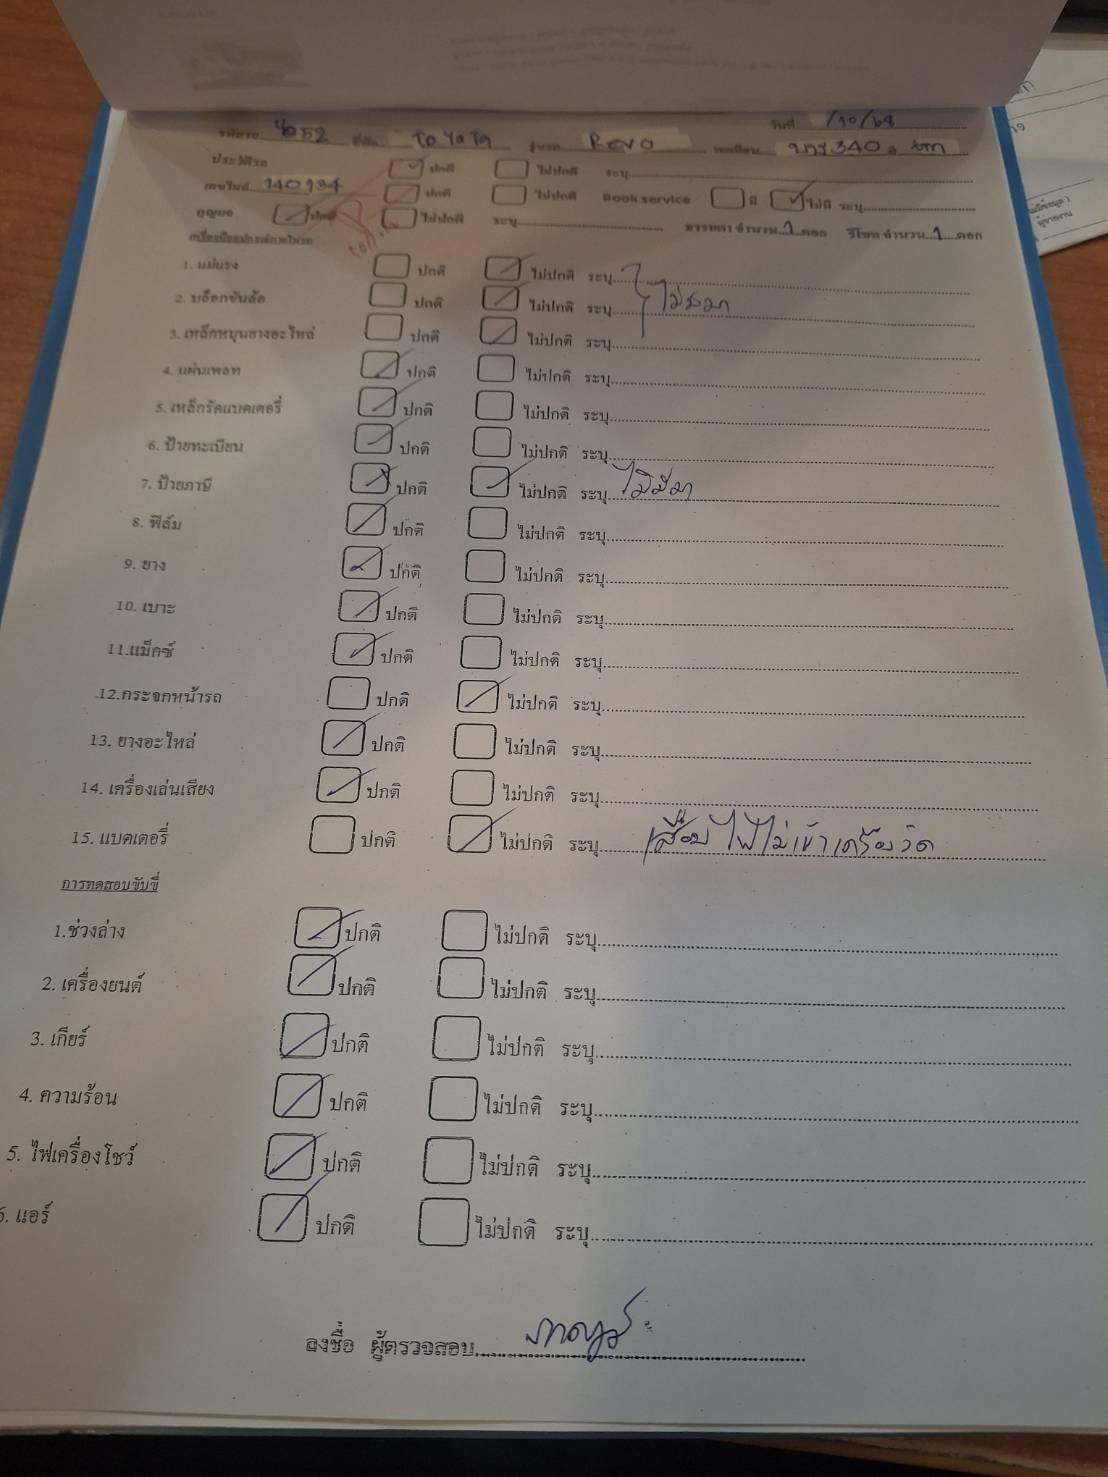 รหัสรถ 4052 ยี่ห้อ ToYoTa รุ่นรถ Revo ทะเบียน 340
วันที่ /10/68
ประวัติรถ ปกติ ไม่ปกติ ระบุ
เลขไมล์ 140134 ปกติ ไม่ปกติ Book service มี ไม่มี ระบุ
กุญแจ ปกติ ไม่ปกติ ระบุ ธรรมดา จำนวน 1 ดอก รีโมท จำนวน 1 ดอก
1. แม่แรง ปกติ ไม่ปกติ ระบุ
2. บล็อกขันล้อ ปกติ ไม่ปกติ ระบุ ไม่มีมา
3. เหล็กหมุนยางอะไหล่ ปกติ ไม่ปกติ ระบุ
4. แผ่นเพลท ปกติ ไม่ปกติ ระบุ
5. เหล็กรัดแบตเตอรี่ ปกติ ไม่ปกติ ระบุ
6. ป้ายทะเบียน ปกติ ไม่ปกติ ระบุ
7. ป้ายภาษี ปกติ ไม่ปกติ ระบุ ไม่มีมา
8. ฟิล์ม ปกติ ไม่ปกติ ระบุ
9. ยาง ปกติ ไม่ปกติ ระบุ
10. เบาะ ปกติ ไม่ปกติ ระบุ
11.แม็กซ์ ปกติ ไม่ปกติ ระบุ
12.กระจกหน้ารถ ปกติ ไม่ปกติ ระบุ
13. ยางอะไหล่ ปกติ ไม่ปกติ ระบุ
14. เครื่องเล่นเสียง ปกติ ไม่ปกติ ระบุ
15. แบตเตอรี่ ปกติ ไม่ปกติ ระบุ เสื่อม ไฟไม่เข้าเครื่องวัด
การทดสอบขับขี่
1.ช่วงล่าง ปกติ ไม่ปกติ ระบุ
2. เครื่องยนต์ ปกติ ไม่ปกติ ระบุ
3. เกียร์ ปกติ ไม่ปกติ ระบุ
4. ความร้อน ปกติ ไม่ปกติ ระบุ
5. ไฟเครื่องโชว์ ปกติ ไม่ปกติ ระบุ
6. แอร์ ปกติ ไม่ปกติ ระบุ
ลงชื่อ ผู้ตรวจสอบ